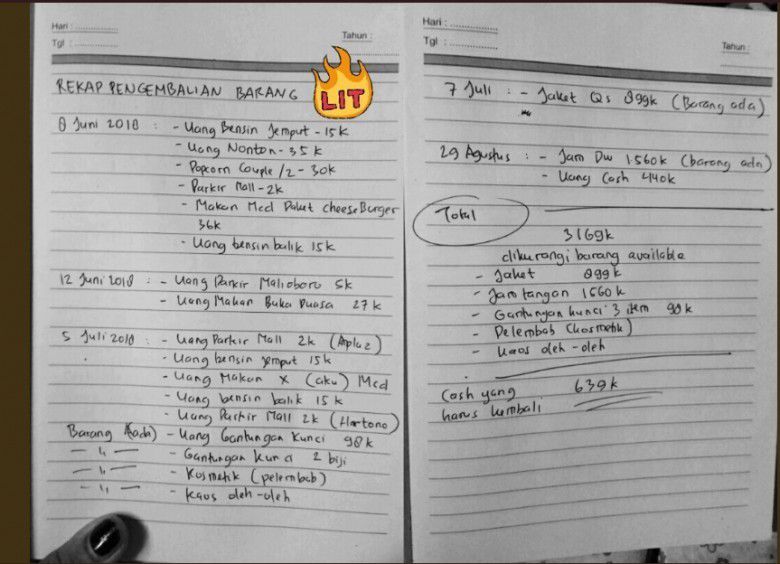 Hari :
Tgl :
Tahun :
REKAP PENGEMBALIAN BARANG
LIT
8 Juni 2018 : - Uang Bensin Jemput - 15k
- Uang Nonton - 35k
- Popcorn Couple /2 - 30k
- Parkir Mall - 2k
- Makan Mcd Paket cheese Burger
36k
- Uang bensin balik 15k
12 Juni 2018 : - Uang Parkir Malioboro 5k
- Uang Makan Buka Puasa 27k
5 Juli 2018 : - Uang Parkir Mall 2k (Aplaz)
- Uang bensin jemput 15k
- Uang Makan x (aku) Mcd
- Uang bensin balik 15k
- Uang Parkir Mall 2k (Hartono)
Barang (ada) - Uang Gantungan Kunci 98k
— 11 — - Gantungan Kunci 2 biji
— 11 — - Kosmetik (pelembab)
— 11 — - Kaos oleh-oleh
Hari :
Tgl :
Tahun :
7 Juli : - Jaket Qs 899k (Barang ada)
29 Agustus : - Jam DW 1.560k (barang ada)
- Uang Cash 440k
Total
3169k
dikurangi barang available
- Jaket 899k
- Jam tangan 1560k
- Gantungan kunci 3 item 98k
- Pelembab (kosmetik)
- Kaos oleh-oleh
Cash yang 639k
harus kembali